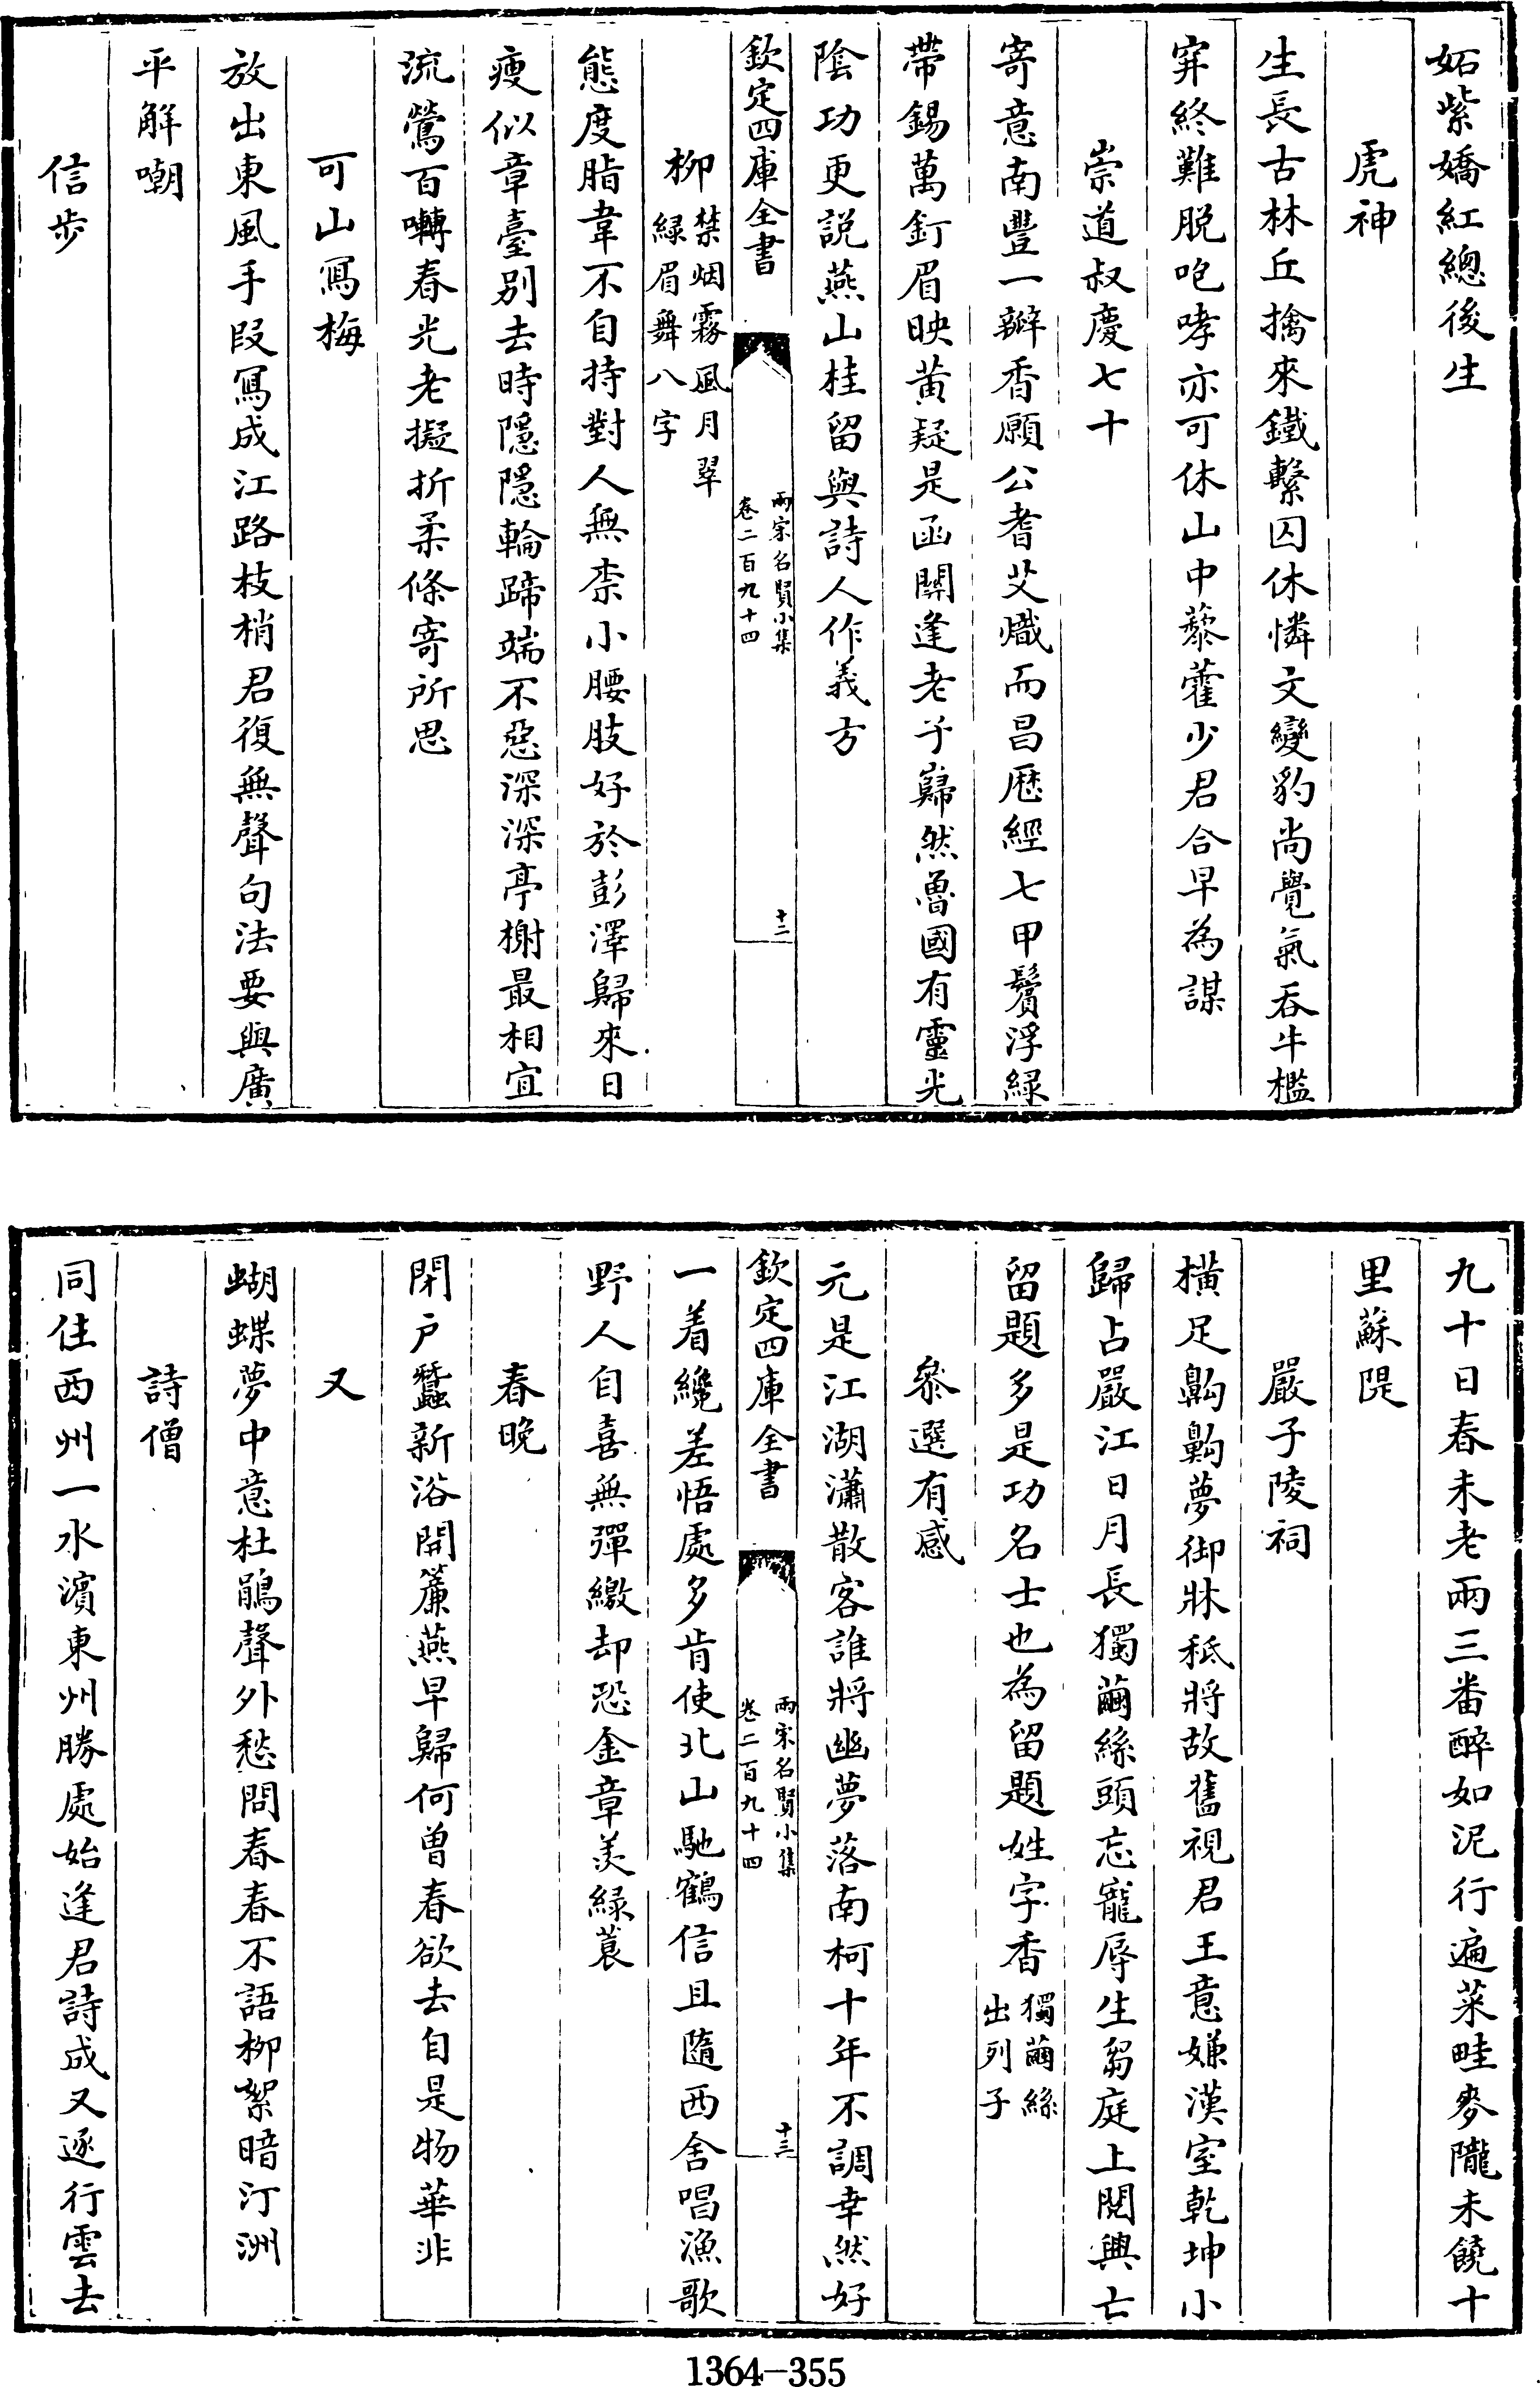 妬紫嬌紅總後生
虎神
生長古林丘擒來鐵繫囚休憐文變豹尚覺氣吞牛檻
穽終難脱咆哮亦可休山中藜藿少君合早為謀
崇道叔慶七十
寄意南豐一瓣香願公耆艾熾而昌歷經七甲鬢浮綠
帶錫萬釘眉映黃疑是函關逢老子巋然魯國有靈光
陰功更説燕山桂留與詩人作義方
欽定四庫全書
兩宋名賢小集
卷二百九十四
十二
柳
禁烟霧風月翠
綠眉舞八字
態度脂韋不自持對人無柰小腰肢好於彭澤歸來日
瘦似章臺别去時隱隱輪蹄端不惡深深亭榭最相宜
流鶯百囀春光老擬折柔條寄所思
可山寫梅
放出東風手段寫成江路枝梢君復無聲句法要與廣
平解嘲
信步
九十日春未老兩三番醉如泥行遍菜畦麥隴未饒十
里蘇隄
嚴子陵祠
橫足齁齁夢御牀秪將故舊視君王意嫌漢室乾坤小
歸占嚴江日月長獨繭絲頭忘寵辱生芻庭上閱興亡
留題多是功名士也為留題姓字香
獨繭絲
出列子
叅選有感
元是江湖瀟散客誰將幽夢落南柯十年不調幸然好
欽定四庫全書
兩宋名賢小集
卷二百九十四
十三
一着纔差悟處多肯使北山馳鶴信且隨西舍唱漁歌
野人自喜無彈繳却恐金章羨綠蓑
春晚
閉户蠶新浴開簾燕早歸何曾春欲去自是物華非
又
蝴蝶夢中意杜鵑聲外愁問春春不語柳絮暗汀洲
詩僧
同住西州一水濱東州勝處始逢君詩成又逐行雲去
1364-355